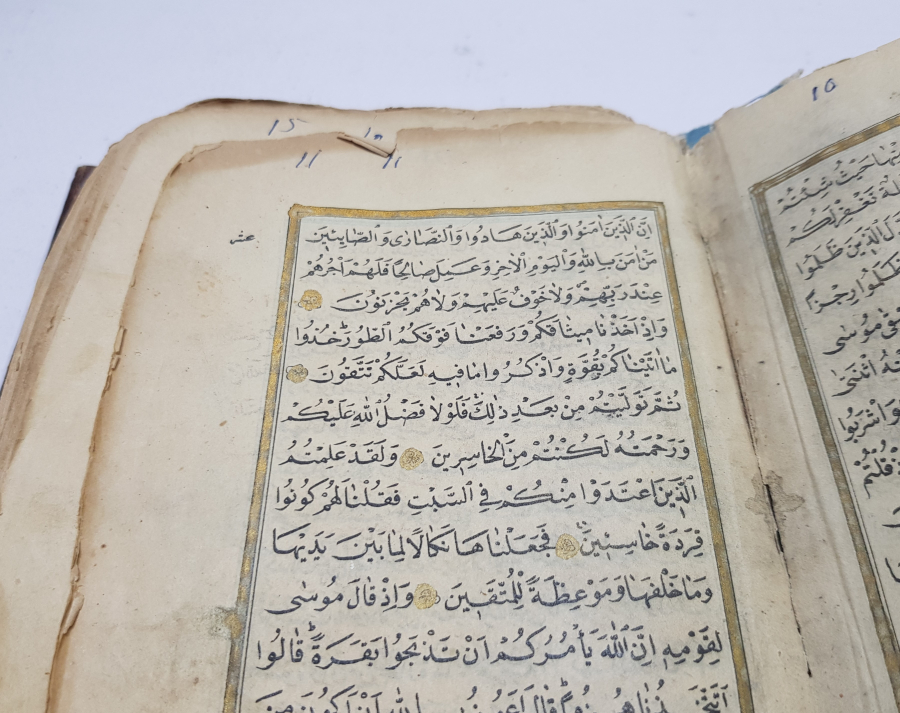 10
15 10
11 11
عشر
اِنَّ الَّذٖينَ اٰمَنُوا وَالَّذٖينَ هَادُوا وَالنَّصَارٰى وَالصَّابِئٖينَ
مَنْ اٰمَنَ بِاللّٰهِ وَالْيَوْمِ الْاٰخِرِ وَعَمِلَ صَالِحًا فَلَهُمْ اَجْرُهُمْ
عِنْدَ رَبِّهِمْ وَلَا خَوْفٌ عَلَيْهِمْ وَلَا هُمْ يَحْزَنُونَ
وَاِذْ اَخَذْنَا مٖيثَاقَكُمْ وَرَفَعْنَا فَوْقَكُمُ الطُّورَ خُذُوا
مَا اٰتَيْنَاكُمْ بِقُوَّةٍ وَاذْكُرُوا مَا فٖيهِ لَعَلَّكُمْ تَتَّقُونَ
ثُمَّ تَوَلَّيْتُمْ مِنْ بَعْدِ ذٰلِكَ فَلَوْلَا فَضْلُ اللّٰهِ عَلَيْكُمْ
وَرَحْمَتُهُ لَكُنْتُمْ مِنَ الْخَاسِرٖينَ وَلَقَدْ عَلِمْتُمُ
الَّذٖينَ اعْتَدَوْا مِنْكُمْ فِي السَّبْتِ فَقُلْنَا لَهُمْ كُونُوا
قِرَدَةً خَاسِئٖينَ فَجَعَلْنَاهَا نَكَالًا لِمَا بَيْنَ يَدَيْهَا
وَمَا خَلْفَهَا وَمَوْعِظَةً لِلْمُتَّقٖينَ وَاِذْ قَالَ مُوسٰى
لِقَوْمِهٖ اِنَّ اللّٰهَ يَأْمُرُكُمْ اَنْ تَذْبَحُوا بَقَرَةً قَالُوا
اَتَتَّخِذُنَا هُزُوًا قَالَ اَعُوذُ بِاللّٰهِ اَنْ اَكُونَ مِنَ
حَيْثُ شِئْتُمْ
نَغْفِرْ لَكُمْ
الَّذٖينَ ظَلَمُوا
ظَلَمُوا رِجْزًا
مُوسٰى
اثْنَتَىْ
وَاشْرَبُوا
قُلْتُمْ